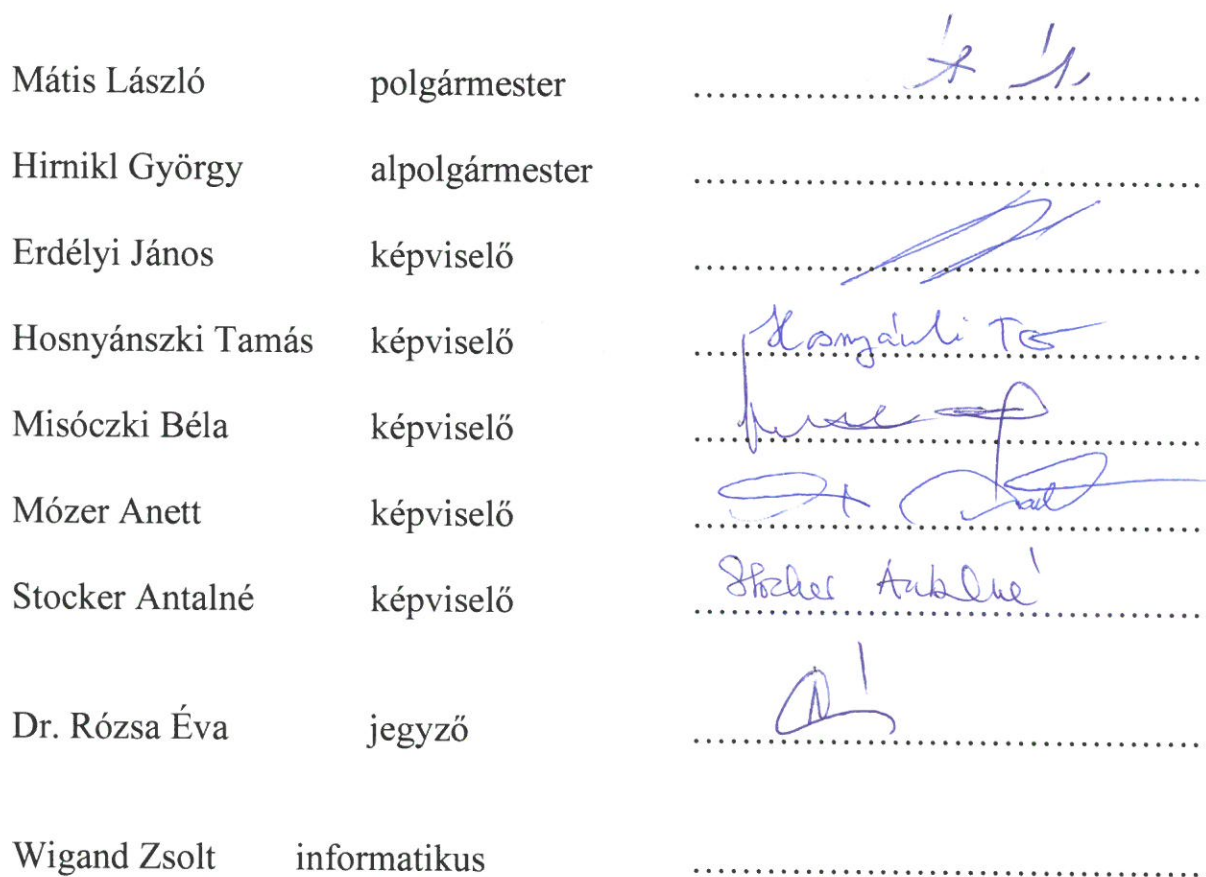 Mátis László polgármester ..................................................
Hirnikl György alpolgármester ..................................................
Erdélyi János képviselő ..................................................
Hosnyánszki Tamás képviselő ..................................................
Misóczki Béla képviselő ..................................................
Mózer Anett képviselő ..................................................
Stocker Antalné képviselő Stocker Antalné
Dr. Rózsa Éva jegyző ..................................................
Wigand Zsolt informatikus ..................................................